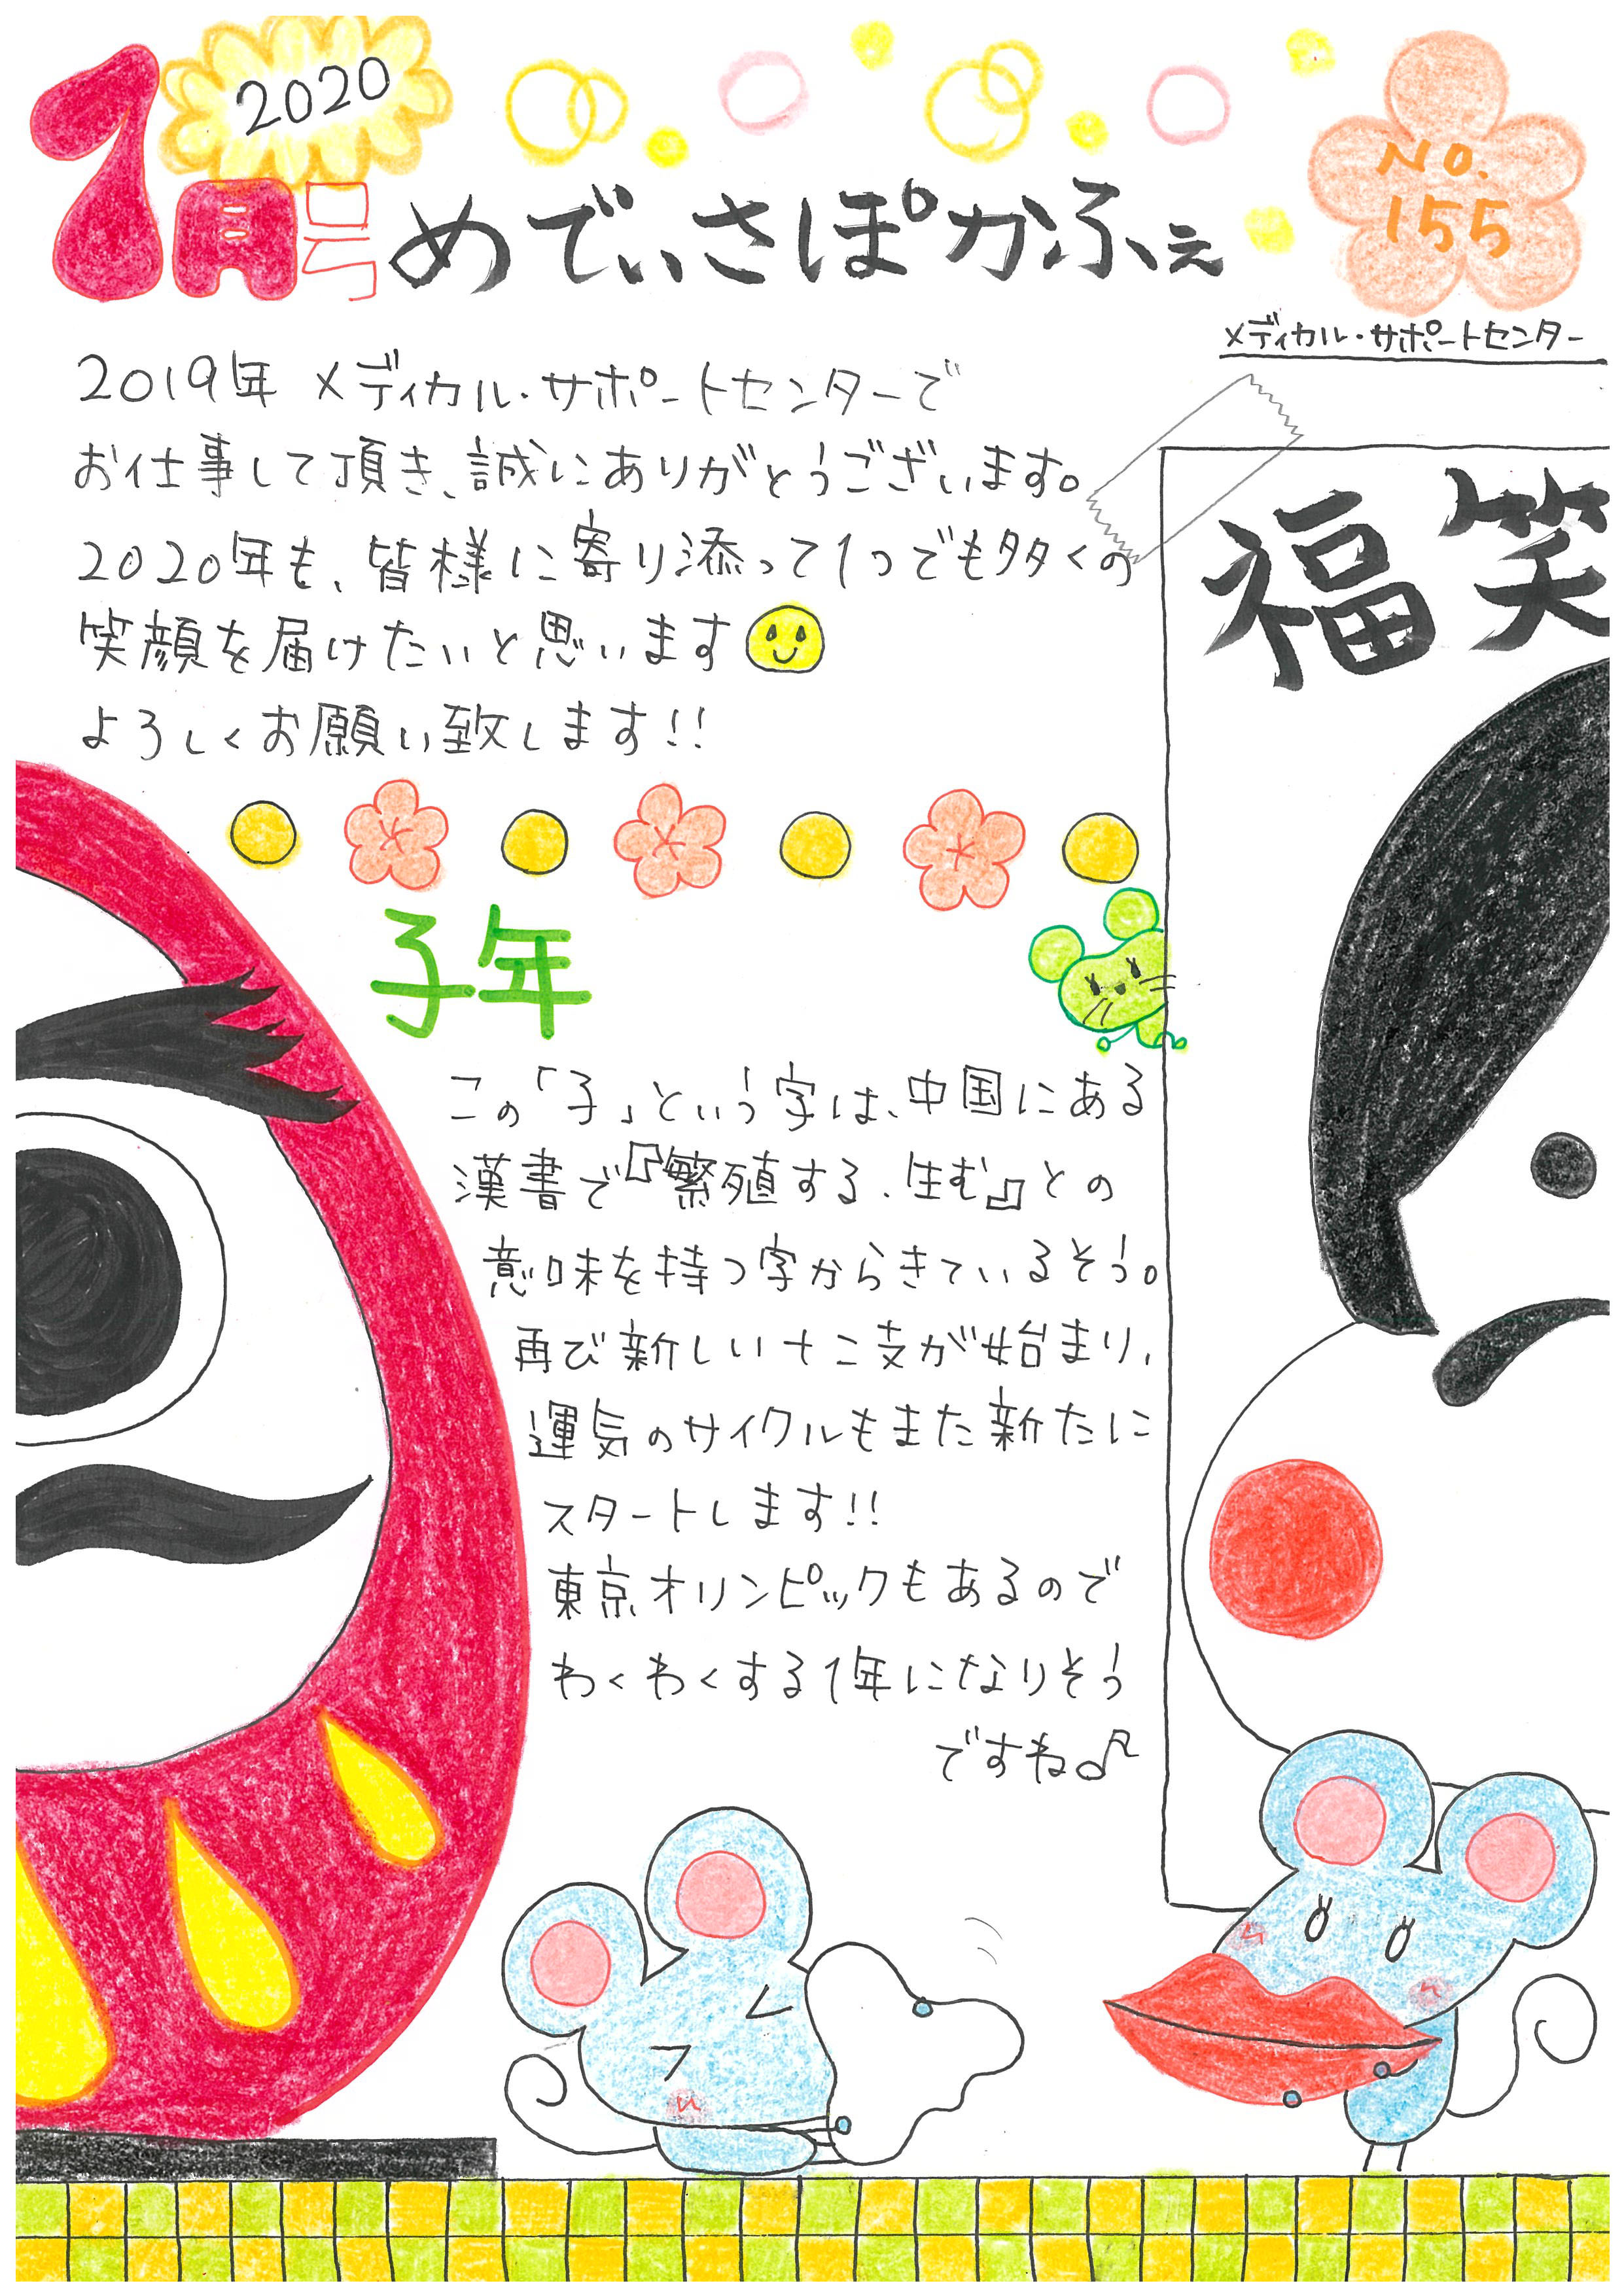 2020
1月号
めでぃさぽかふぇ
NO.
155
メディカル・サポートセンター
2019年 メディカル・サポートセンターで
お仕事して頂き、誠にありがとうございます。
2020年も、皆様に寄り添って1つでも多くの
笑顔を届けたいと思います
よろしくお願い致します!!
福笑
子年
この「子」という字は、中国にある
漢書で『繁殖する、生む』との
意味を持つ字からきているそう。
再び新しい十二支が始まり、
運気のサイクルもまた新たに
スタートします!!
東京オリンピックもあるので
わくわくする1年になりそう
ですね♪